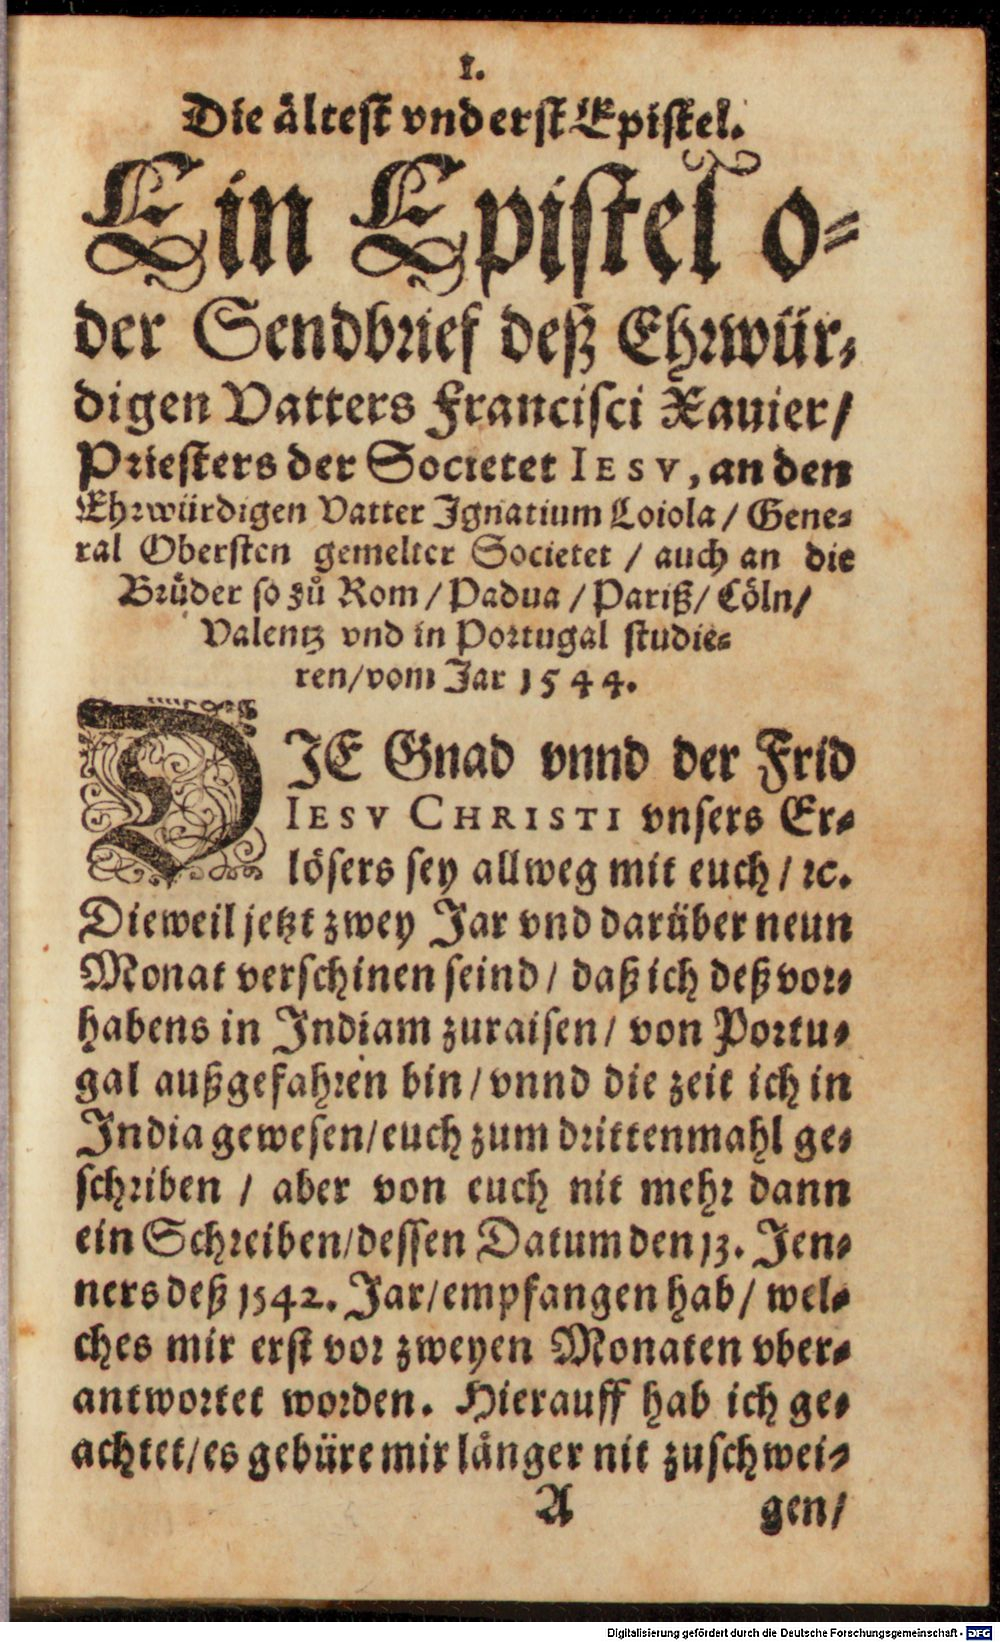 1.
Die ältest vnd erst Epistel.
Ein Epistel o-
der Sendbrief deß Ehrwür-
digen Vatters Francisci Xauier/
Priesters der Societet IESV, an den
Ehrwürdigen Vatter Ignatium Loiola / Gene-
ral Obersten gemelter Societet / auch an die
Brüder so zů Rom / Padua / Pariß / Cöln/
Valentz vnd in Portugal studie-
ren/vom Jar 1544.
DIE Gnad vnnd der Frid
IESV CHRISTI vnsers Er-
lösers sey allweg mit euch / ꝛc.
Dieweil jetzt zwey Jar vnd darüber neun
Monat verschinen seind / daß ich deß vor-
habens in Indiam zuraisen / von Portu-
gal außgefahren bin / vnnd die zeit ich in
India gewesen/euch zum drittenmahl ge-
schriben / aber von euch nit mehr dann
ein Schreiben/dessen Datum den 13. Jen-
ners deß 1542. Jar/empfangen hab / wel-
ches mir erst vor zweyen Monaten vber-
antwortet worden. Hierauff hab ich ge-
achtet/es gebüre mir länger nit zuschwei-
A gen/
Digitalisierung gefördert durch die Deutsche Forschungsgemeinschaft - DFG